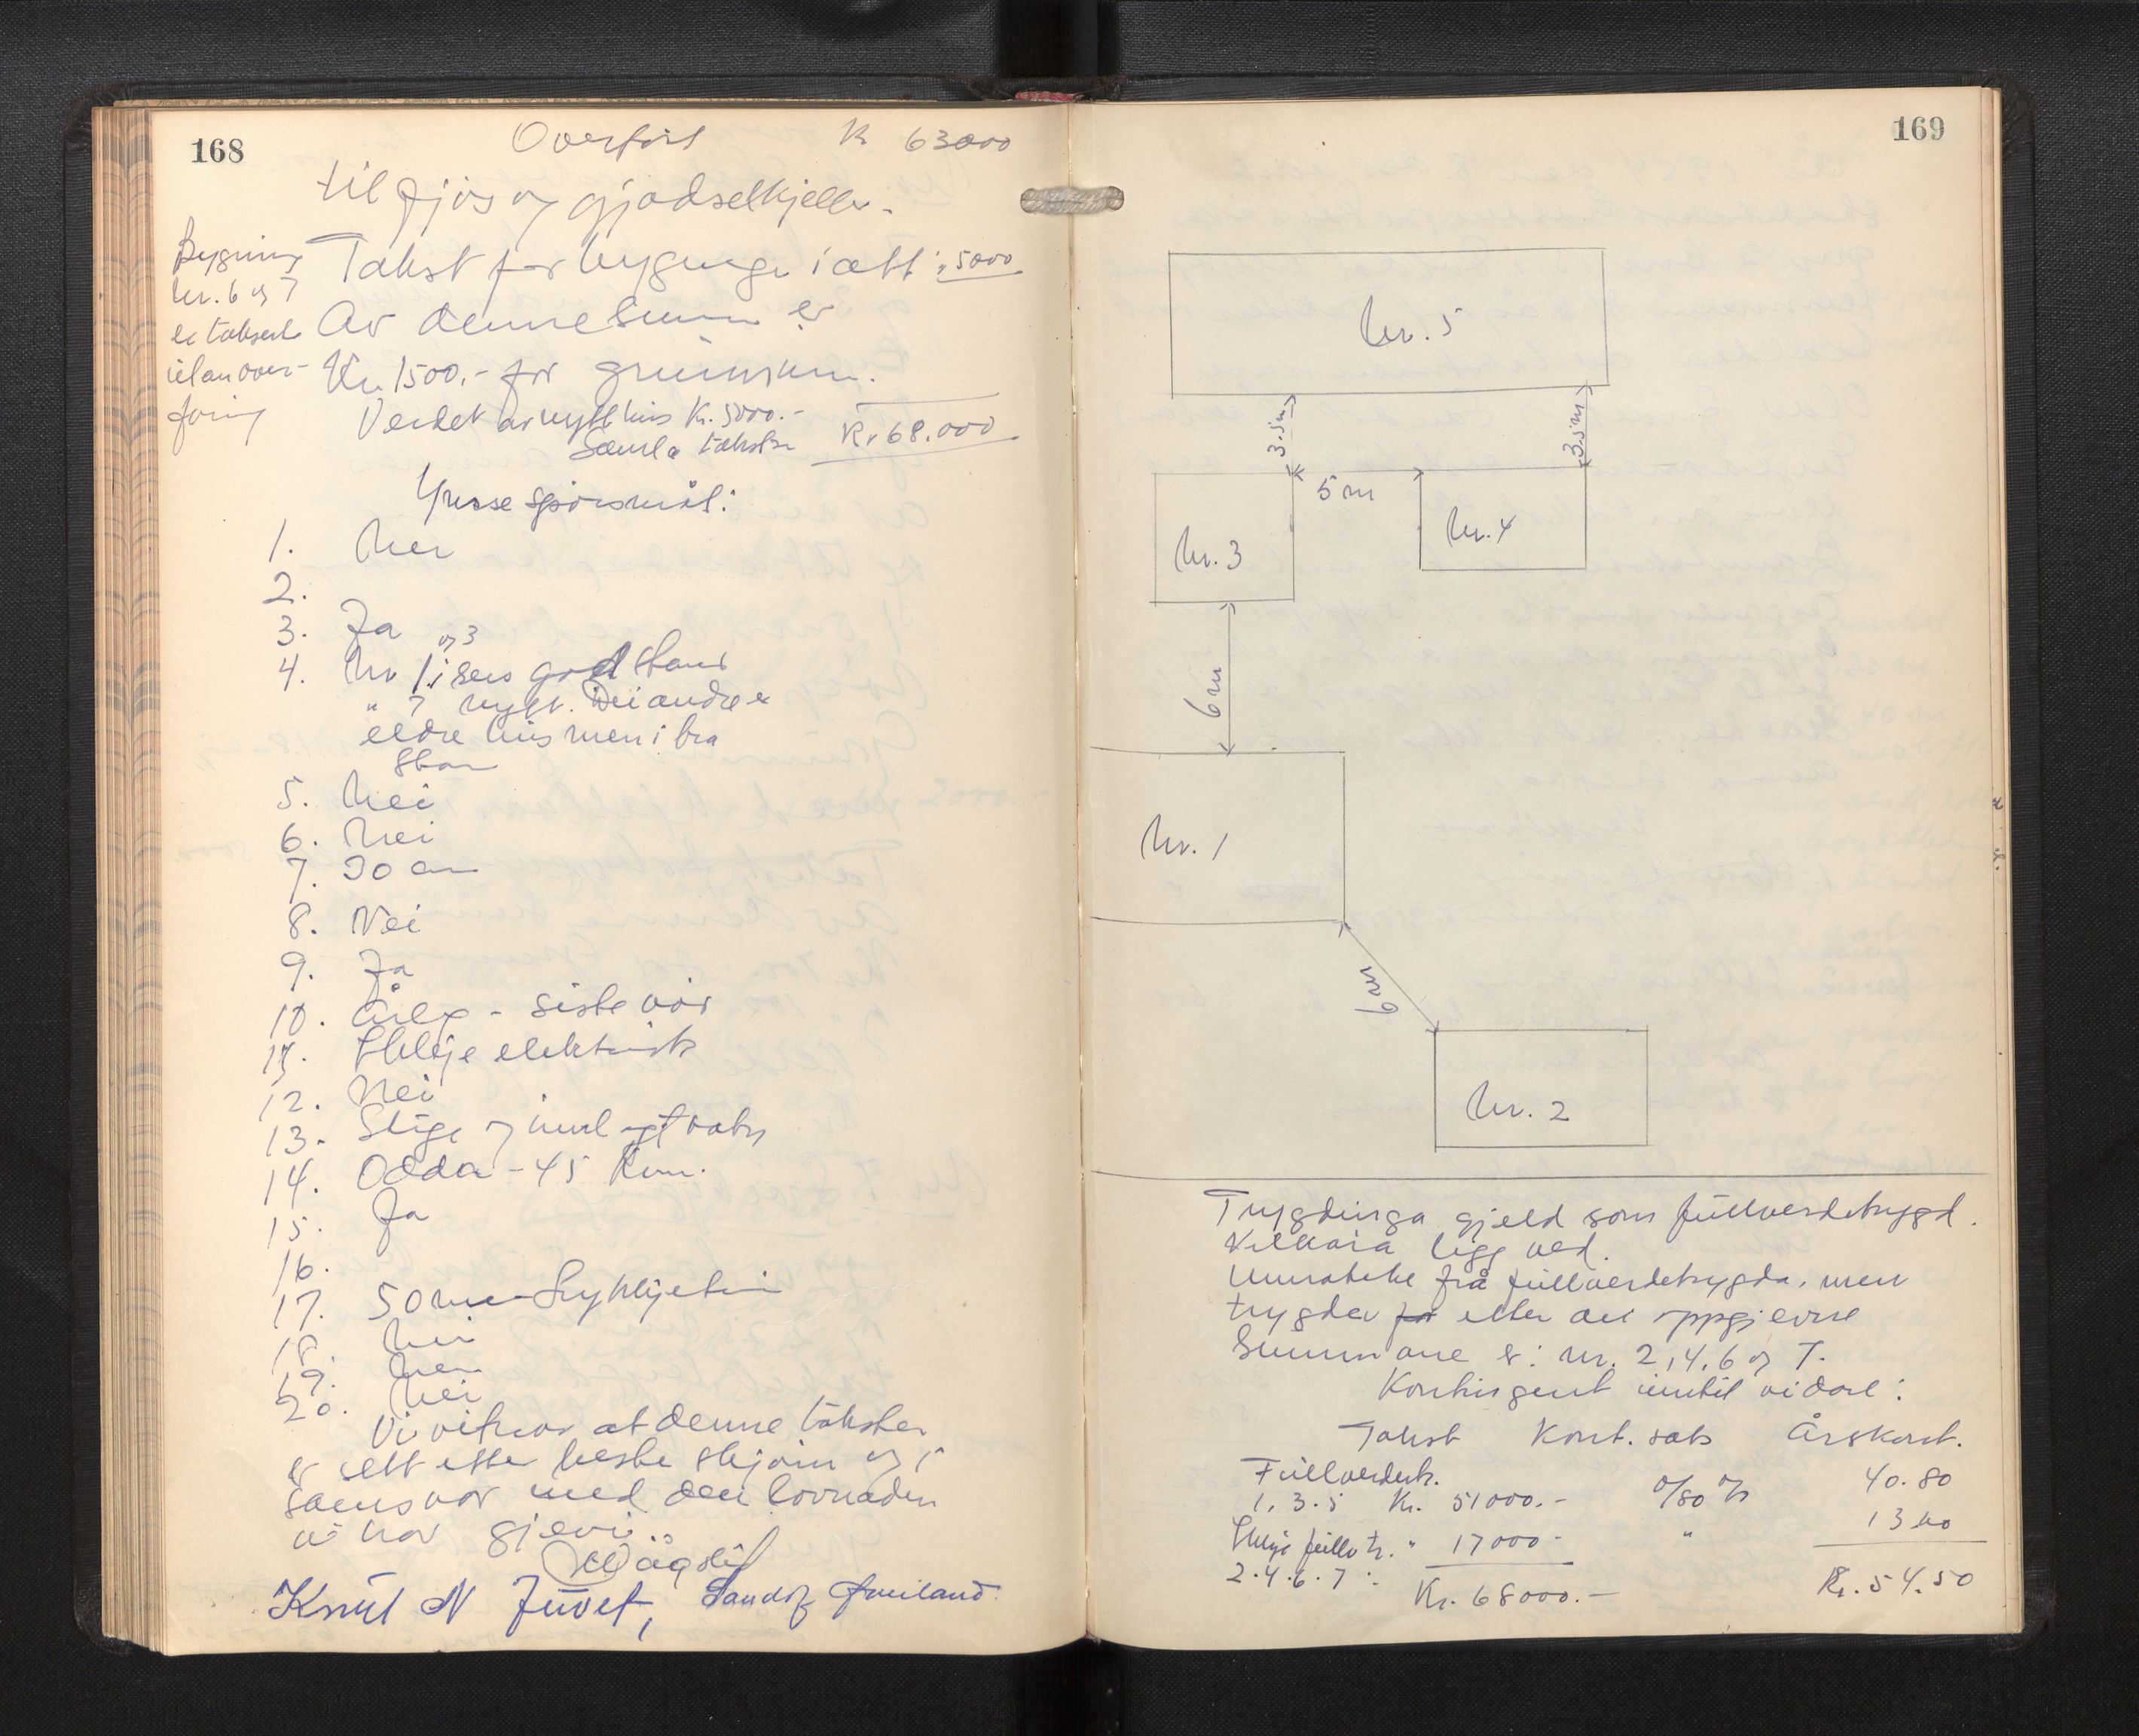 168
Overført Kr 63000
til fjös og gjødselkjeller.
Bygning
Nr. 6 og 7
er taksert
utan over-
føring
Takst for bygningen i alt: " 5000
Av denne Summen er
Kr 1500.- for grunnmuren.
Verdet av nytt hus Kr. 5000.-
Samla takst Kr 68.000
Ymse spørsmål:
1. Nei
2.
3. Ja
4. Nr 1 og 3 i sers god stand
" 7 nytt. Dei andre er
eldre hus men i bra
Stand
5. Nei
6. Nei
7. 30 cm
8. Nei
9. Ja
10. Årleg - siste vår
11. Ikkje elektrisk
12. Nei
13. Stige og innlagt vatn
14. Odda - 45 km.
15. Ja
16.
17. 50 m
18. Nei
19. Nei
20. Nei
Vi vitnar at denne taksten
er sett etter beste skjøn og i
samsvar med den lovnaden
vi har gjeve.
Knut N Juvet, Sandof
169
Nr. 5
3.5m
3.5m
5 m
Nr. 3
Nr. 4
6 m
Nr. 1
6 m
Nr. 2
Trygdinga gjeld som fullverdetrygd.
Vilkåra ligg ved.
Unnateke frå fullverdetrygda, men
trygder for etter dei oppgjevne
Summane er: Nr. 2, 4, 6 og 7.
Kontingent inntil vidare:
Takst Kont. sats Årskont.
Fullverdetr.
1. 3. 5 Kr. 51000.- 0/80 ‰ 40.80
Ikkje fullv tr. " 17000- " 13.60
2. 4. 6. 7 :
Kr. 68000.- Kr. 54.50